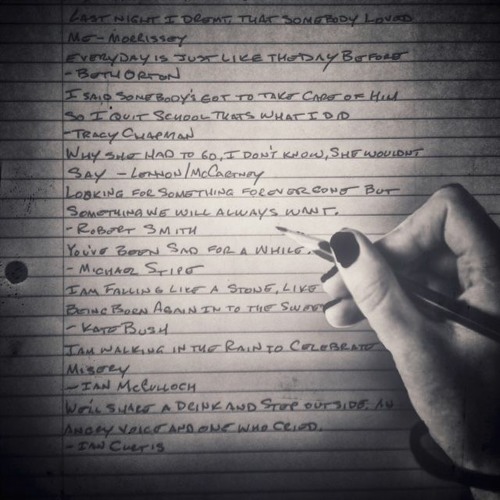 LAST NIGHT I DREMT THAT SOMEBODY LOVED
ME - MORRISSEY
EVERYDAY IS JUST LIKE THE DAY BEFORE
- BETH ORTON
I SAID SOMEBODY'S GOT TO TAKE CARE OF HIM
SO I QUIT SCHOOL THATS WHAT I DID
- TRACY CHAPMAN
WHY SHE HAD TO GO, I DON'T KNOW, SHE WOULDNT
SAY - LENNON/McCARTNEY
LOOKING FOR SOMETHING FOREVER GONE BUT
SOMETHING WE WILL ALWAYS WANT.
- ROBERT SMITH
YOU'VE BEEN SAD FOR A WHILE.
- MICHAEL STIPE
I AM FALLING LIKE A STONE, LIKE
BEING BORN AGAIN IN TO THE SWEET
- KATE BUSH
I AM WALKING IN THE RAIN TO CELEBRATE
MISERY
- IAN McCULLOCH
WE'LL SHARE A DRINK AND STEP OUTSIDE, AN
ANGRY VOICE AND ONE WHO CRIED.
- IAN CURTIS